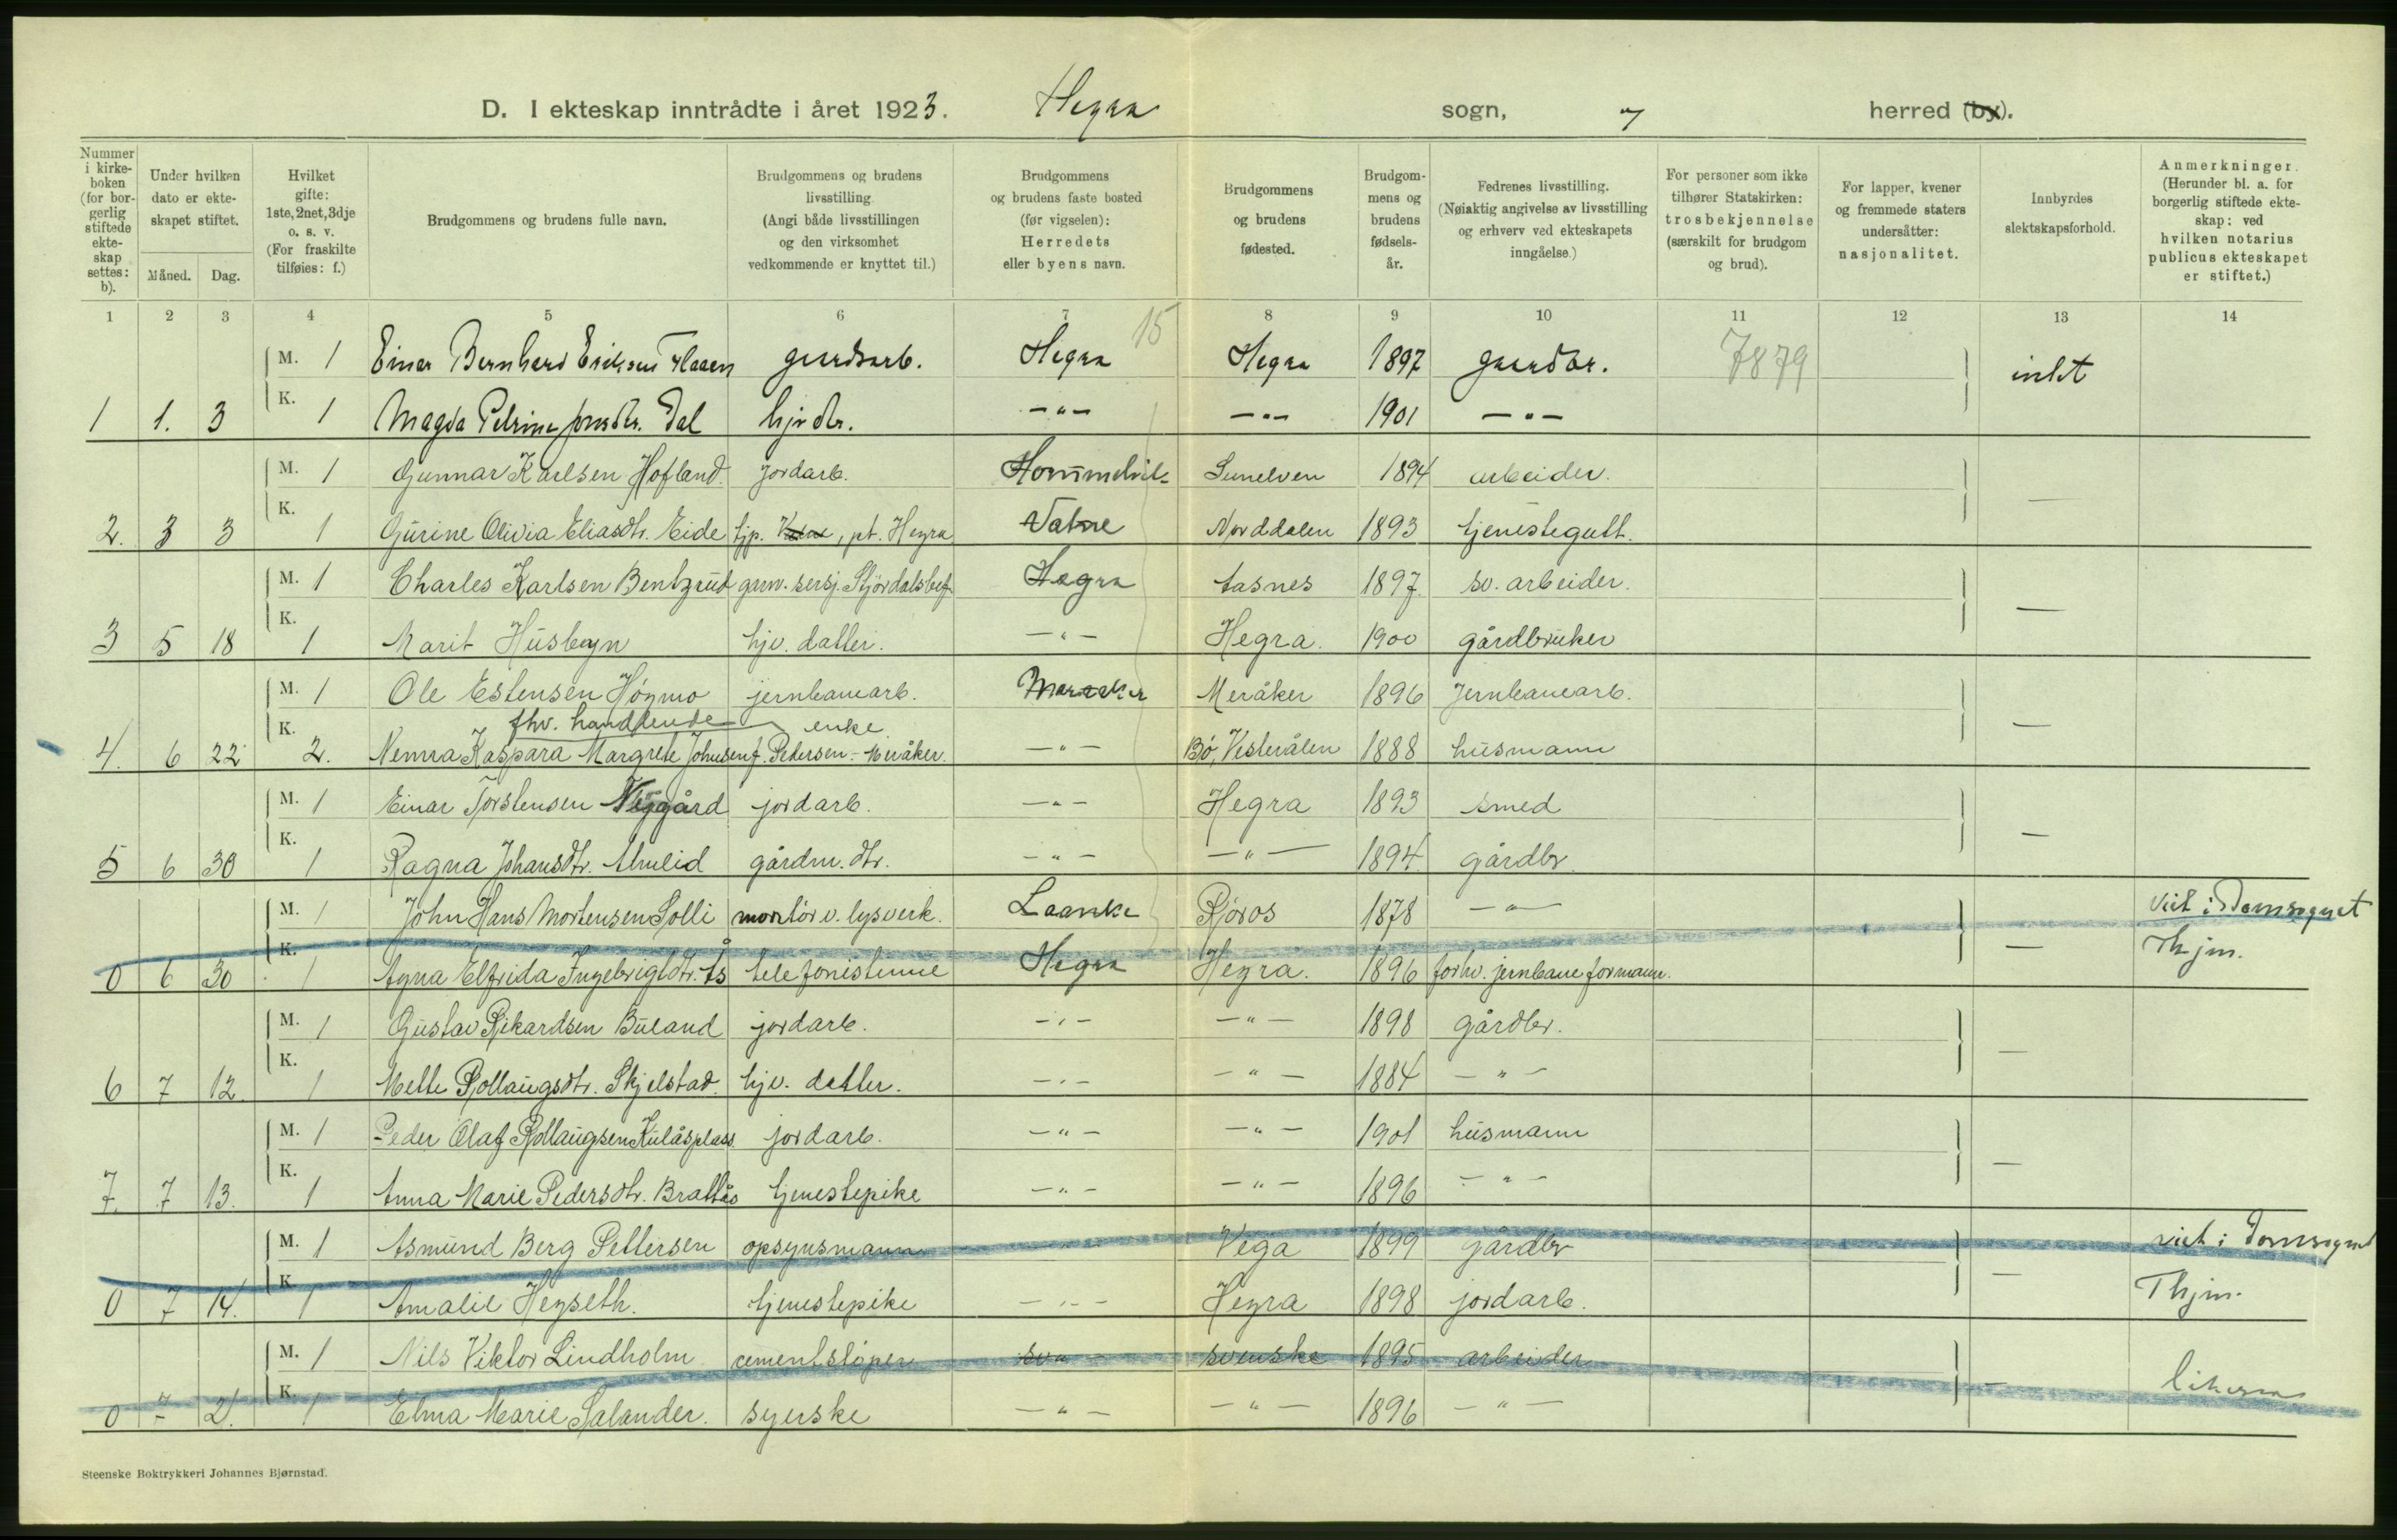 D. I ekteskap inntrådte i året 1923. Hegra sogn, " herred (by).
Nummer i kirkeboken (for borgerlig stiftede ekteskap settes: b).
Under hvilken dato er ekteskapet stiftet.
Måned. Dag.
Hvilket gifte: 1ste, 2net, 3dje o. s. v. (For fraskilte tilføies: f.)
Brudgommens og brudens fulle navn.
Brudgommens og brudens livsstilling. (Angi både livsstillingen og den virksomhet vedkommende er knyttet til.)
Brudgommens og brudens faste bosted (før vigselen): Herredets eller byens navn.
Brudgommens og brudens fødested.
Brudgommens og brudens fødselsår.
Fedrenes livsstilling. (Nøiaktig angivelse av livsstilling og erhverv ved ekteskapets inngåelse.)
For personer som ikke tilhører Statskirken: trosbekjennelse (særskilt for brudgom og brud).
For lapper, kvener og fremmede staters undersåtter: nasjonalitet.
Innbyrdes slektskapsforhold.
Anmerkninger. (Herunder bl. a. for borgerlig stiftede ekteskap: ved hvilken notarius publicus ekteskapet er stiftet.)
1 2 3 4 5 6 7 8 9 10 11 12 13 14
15
M. 1 Einar Bernhard Eriksen Flaaen gaardsarb. Hegra Hegra 1897 gaardbr. 7879 intet
1 1. 3 K. 1 Magda Petrine Dal hjv dtr. -"- -"- 1901 -"-
M. 1 Gunnar Karlsen Hofland. jordarb. Hommelvik Sunelven 1894 arbeider.
2. 3 3 K. 1 Gurine Olivia Eliasdtr. Eide tjp. , pt. Hegra Vatne Norddalen 1893 tjenestegutt. —
M. 1 Charles Karlsen Bentzrud garn. sersj. Stjørdalsbef. Hegra Åsnes 1897. sv. arbeider.
3 5 18 K. 1 Marit Husbyn hjv. datter. -"- Hegra. 1900 gårdbruker —
M. 1 Ole Estensen Høgmo jernbanearb. Meraker Meråker 1896 Jernbanearb.
fhv. handlende enke
4. 6 22 K. 2. Nemra Kaspara Margrete Johnsen f. Pedersen - Meråker. -"- Bø, Vesterålen 1888 husmann —
M. 1 Einar Torstensen Nygård jordarb. -"- Hegra 1893 smed
5 6 30 K. 1 Ragna Johansdtr. Almlid gårdm. dtr. -"- -"- 1894 gårdbr. —
M. 1 John Hans Mortensen Solli montør v. lysverk. Laanke Røros 1878 -"- viet i Domsognet
0 6 30 K. 1 Agna Elfrida Ingebrigtdtr. Ås telefonistinne Hegra Hegra. 1896 forhv. jernbaneformann. — Thjm.
M. 1 Gustav Rikardsen Buland jordarb. -"- -"- 1898 gårdbr.
6 7 12 K. 1 Mette Rollaugsdtr. Skjelstad. hjv. datter. -"- -"- 1884 -"- —
M. 1 Peder Olaf Rollaugsen Kulåsplass jordarb. -"- -"- 1901 husmann
7. 7 13. K. 1 Anna Marie Pedersdtr. Brattås tjenestepike -"- -"- 1896 -"- —
M. 1 Asmund Berg Pettersen opsynsmann Vega 1899 gårdbr viet i Domsognet
0 7 14. K. 1 Amalie Hegseth. tjenestepike -"- Hegra 1898 jordarb. — Thjm.
M. 1 Nils Viktor Lindholm cementstøper svenske 1895 arbeider
0 7 21. K. 1 Elma Marie Salander. syerske -"- -"- 1896 -"- —
Steenske Boktrykkeri Johannes Bjørnstad.